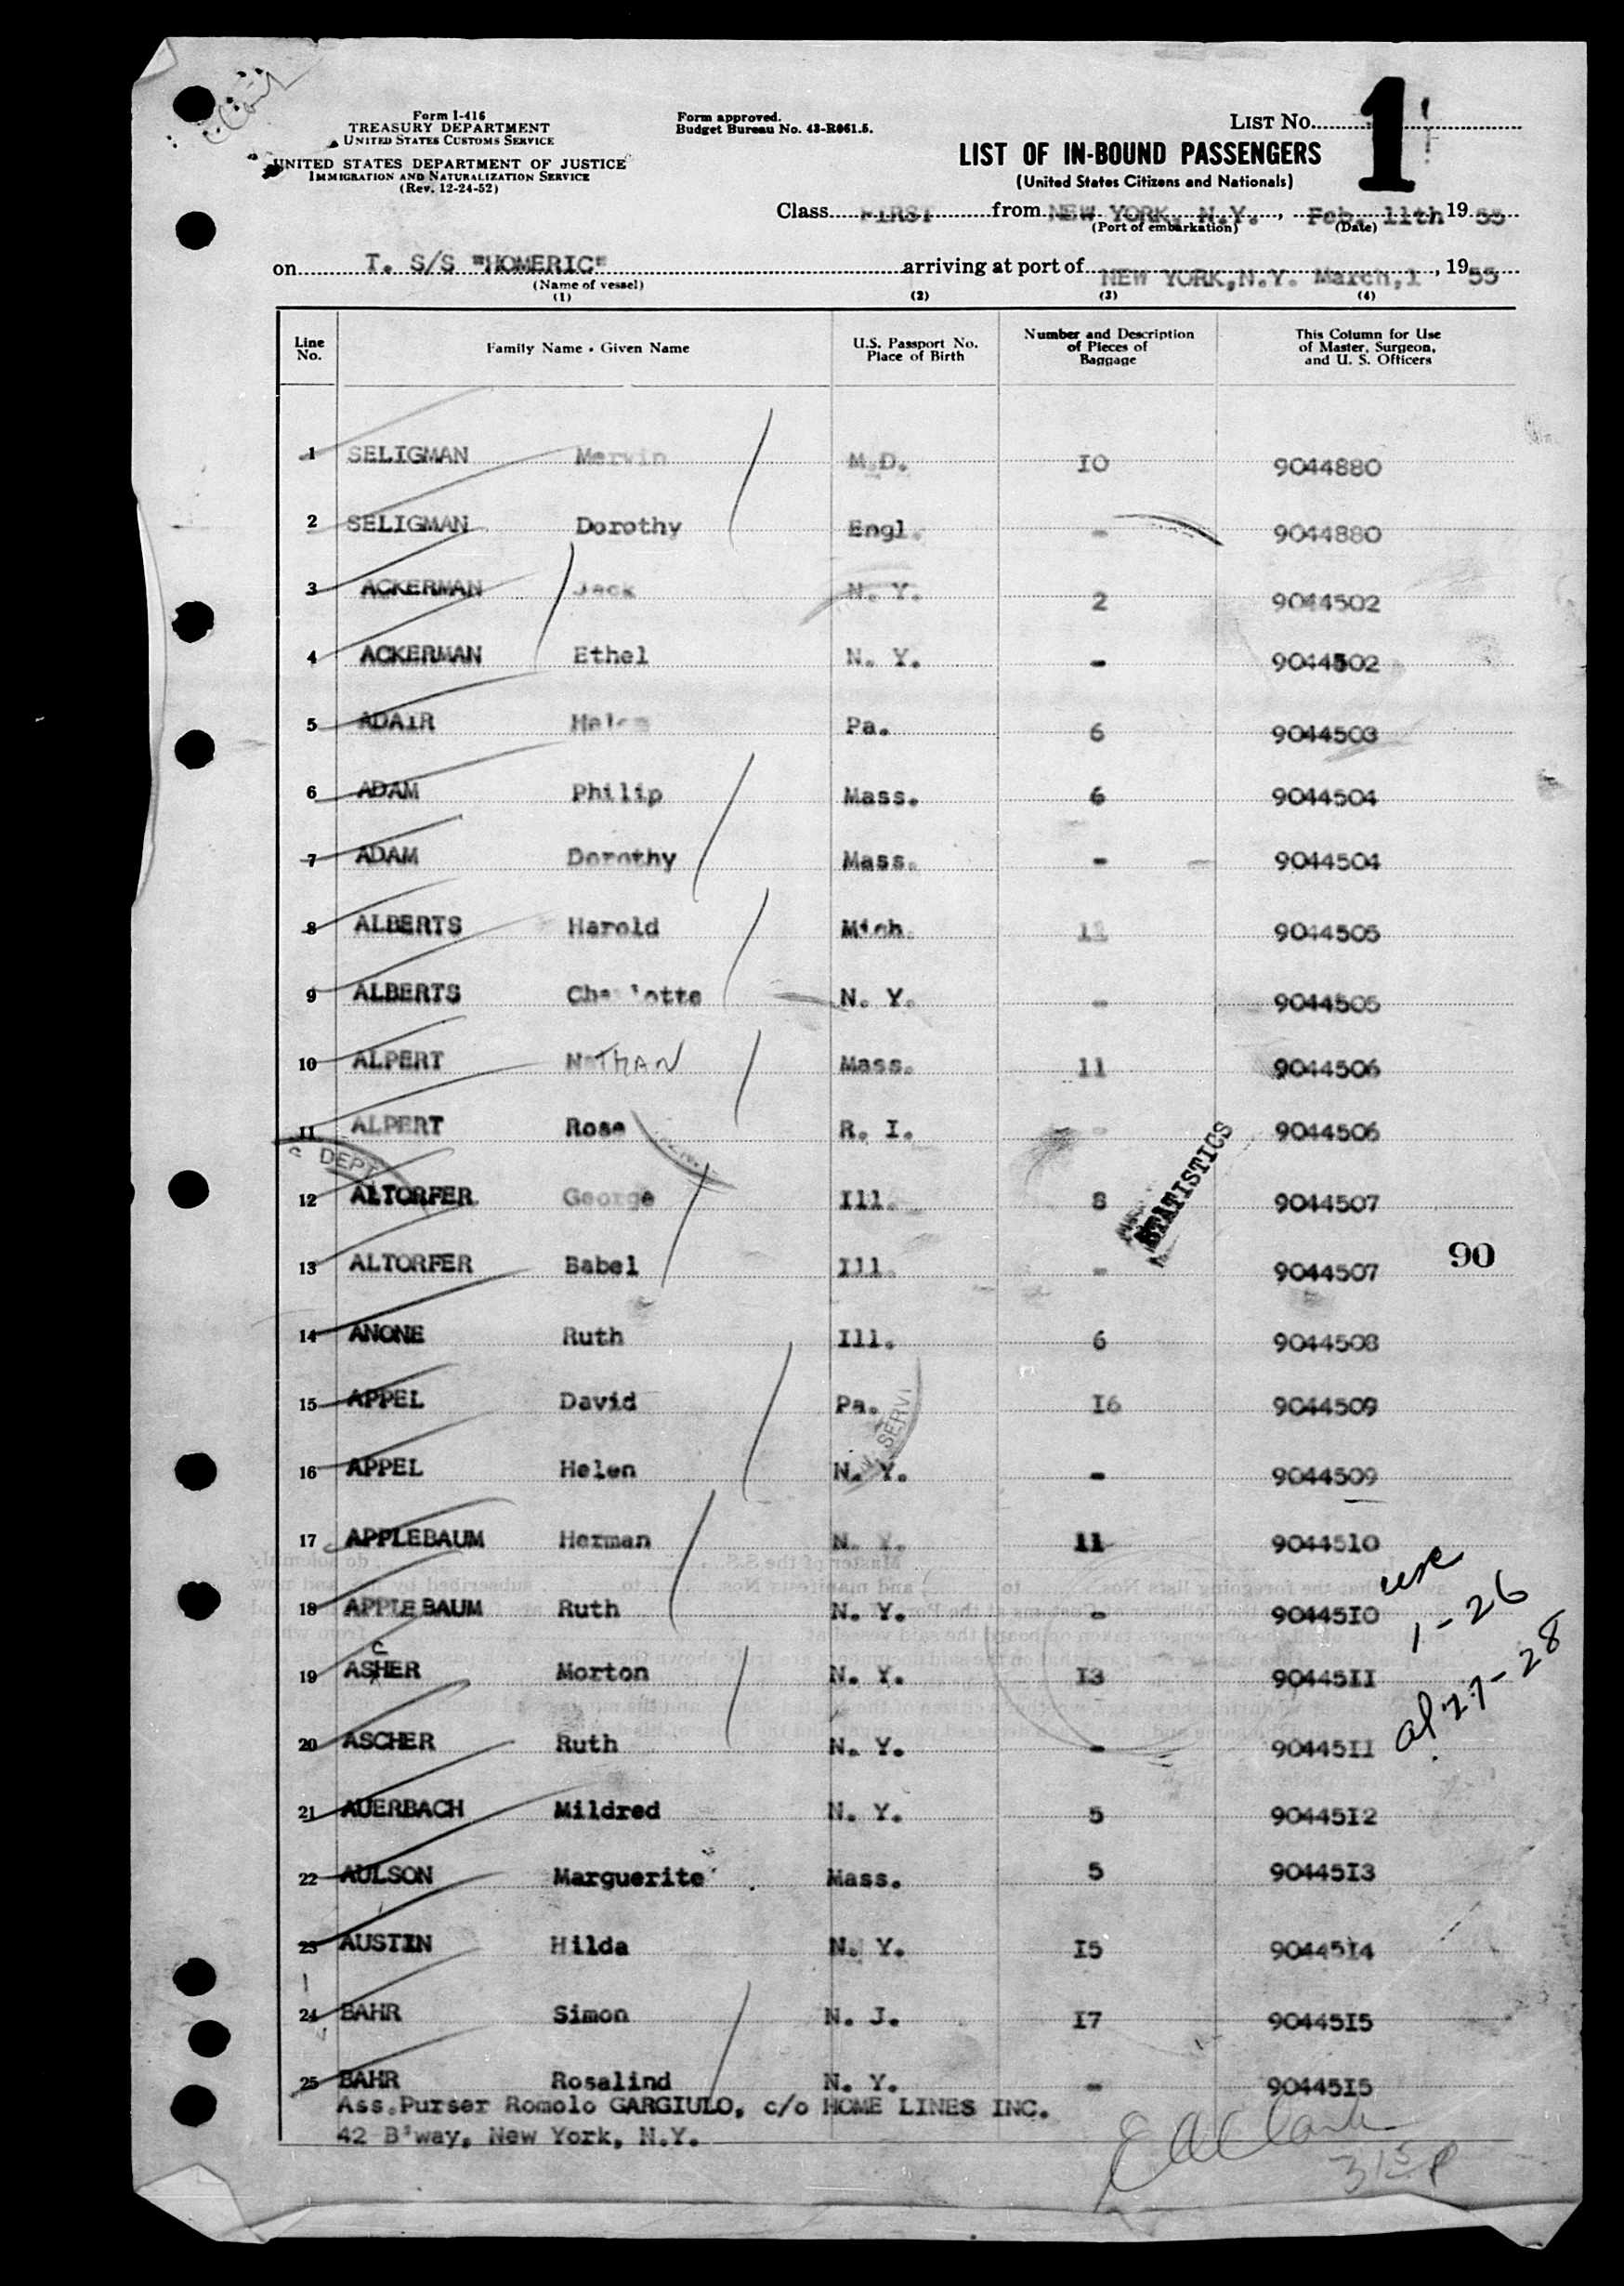 Form I-416
TREASURY DEPARTMENT
UNITED STATES CUSTOMS SERVICE
UNITED STATES DEPARTMENT OF JUSTICE
IMMIGRATION AND NATURALIZATION SERVICE
(Rev. 12-24-52)
Form approved.
Budget Bureau No. 43-R061.5.
LIST No. 1
LIST OF IN-BOUND PASSENGERS
(United States Citizens and Nationals)
Class FIRST from NEW YORK, N.Y., Feb. 11th 1955
(Port of embarkation) (Date)
on T. S/S "HOMERIC" arriving at port of NEW YORK,N.Y. March,1, 1955
(Name of vessel)
(1) (2) (3) (4)
Line No. Family Name - Given Name U.S. Passport No. Place of Birth Number and Description of Pieces of Baggage This Column for Use of Master, Surgeon, and U. S. Officers
1 SELIGMAN Merwin M.D. 10 9044880
2 SELIGMAN Dorothy Engl. - 9044880
3 ACKERMAN Jack N. Y. 2 9044502
4 ACKERMAN Ethel N. Y. - 9044502
5 ADAIR Helen Pa. 6 9044503
6 ADAM Philip Mass. 6 9044504
7 ADAM Dorothy Mass. - 9044504
8 ALBERTS Harold Mich. 11 9044505
9 ALBERTS Charlotte N. Y. - 9044505
10 ALPERT NATHAN Mass. 11 9044506
11 ALPERT Rose R. I. - 9044506
DEPT
12 ALTORFER George Ill. 8 9044507
STATISTICS
13 ALTORFER Babel Ill. - 9044507
90
14 ANONE Ruth Ill. 6 9044508
15 APPEL David Pa. 16 9044509
SERVI
16 APPEL Helen N. Y. - 9044509
17 APPLEBAUM Herman N. Y. 11 9044510
use
18 APPLEBAUM Ruth N. Y. - 9044510
1-26
c
19 ASHER Morton N. Y. 13 9044511
27-28
20 ASCHER Ruth N. Y. - 9044511
21 AUERBACH Mildred N. Y. 5 9044512
22 AULSON Marguerite Mass. 5 9044513
23 AUSTIN Hilda N. Y. 15 9044514
24 BAHR Simon N. J. 17 9044515
25 BAHR Rosalind N. Y. - 9044515
Ass.Purser Romolo GARGIULO, c/o HOME LINES INC.
42 B'way, New York, N.Y.